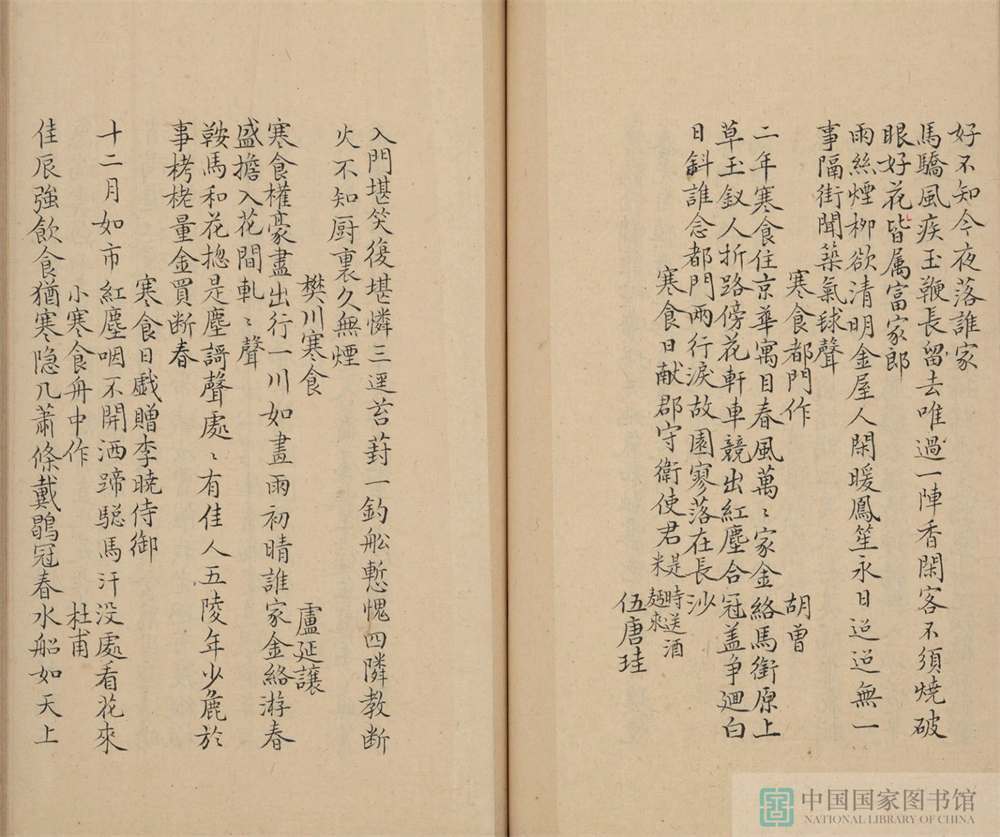 好不知今夜落誰家
馬驕風疾玉鞭長留去唯過一陣香閑客不須燒破
眼好花皆属富家郎
雨絲煙柳欲清明金屋人閑暖鳳笙永日迢迢無一
事隔街聞築氣毬聲
寒食都門作 胡曾
二年寒食住京華寓目春風萬〻家金絡馬銜原上
草玉釵人折路傍花軒車競出紅塵合冠盖争迴白
日斜誰念都門兩行淚故園寥落在長沙
寒食日献郡守衛使君是時送酒米趂來 伍唐珪
入門堪笑復堪憐三逕苔葑一釣舩慙愧四隣教断
火不知厨裏久無煙
樊川寒食 盧延讓
寒食權豪盡出行一川如畫雨初晴誰家金絡游春
盛擔入花間軋〻聲
鞍馬和花揔是塵謌聲處〻有佳人五陵年少麁於
事栲栳量金買断春
寒食日戯贈李曉侍御
十二月如市紅塵咽不開洒蹄驄馬汗没處看花來
小寒食舟中作 杜甫
佳辰強飲食猶寒隐几蕭條戴鶡冠春水船如天上
中国国家图书馆
NATIONAL LIBRARY OF CHINA